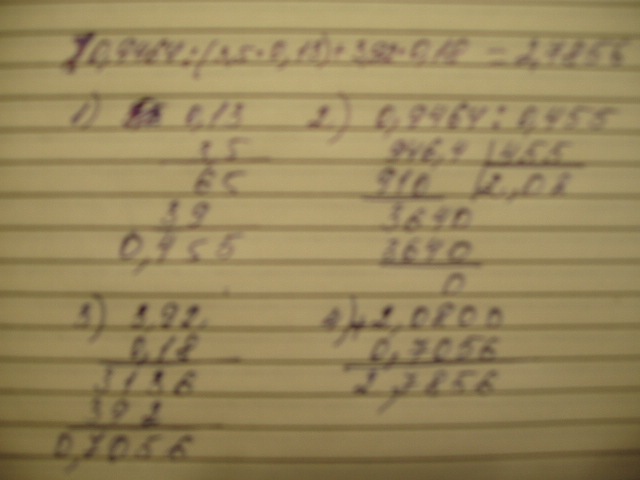 0,9464:(3,5·0,13)+3,92·0,18 = 2,7856
1) 0,13
3 5
65
39
0,455
2) 0,9464:0,455
946,4 | 455
910 | 2,08
3640
3640
0
3) 3,92
0,18
3136
392
0,7056
4) + 2,0800
0,7056
2,7856